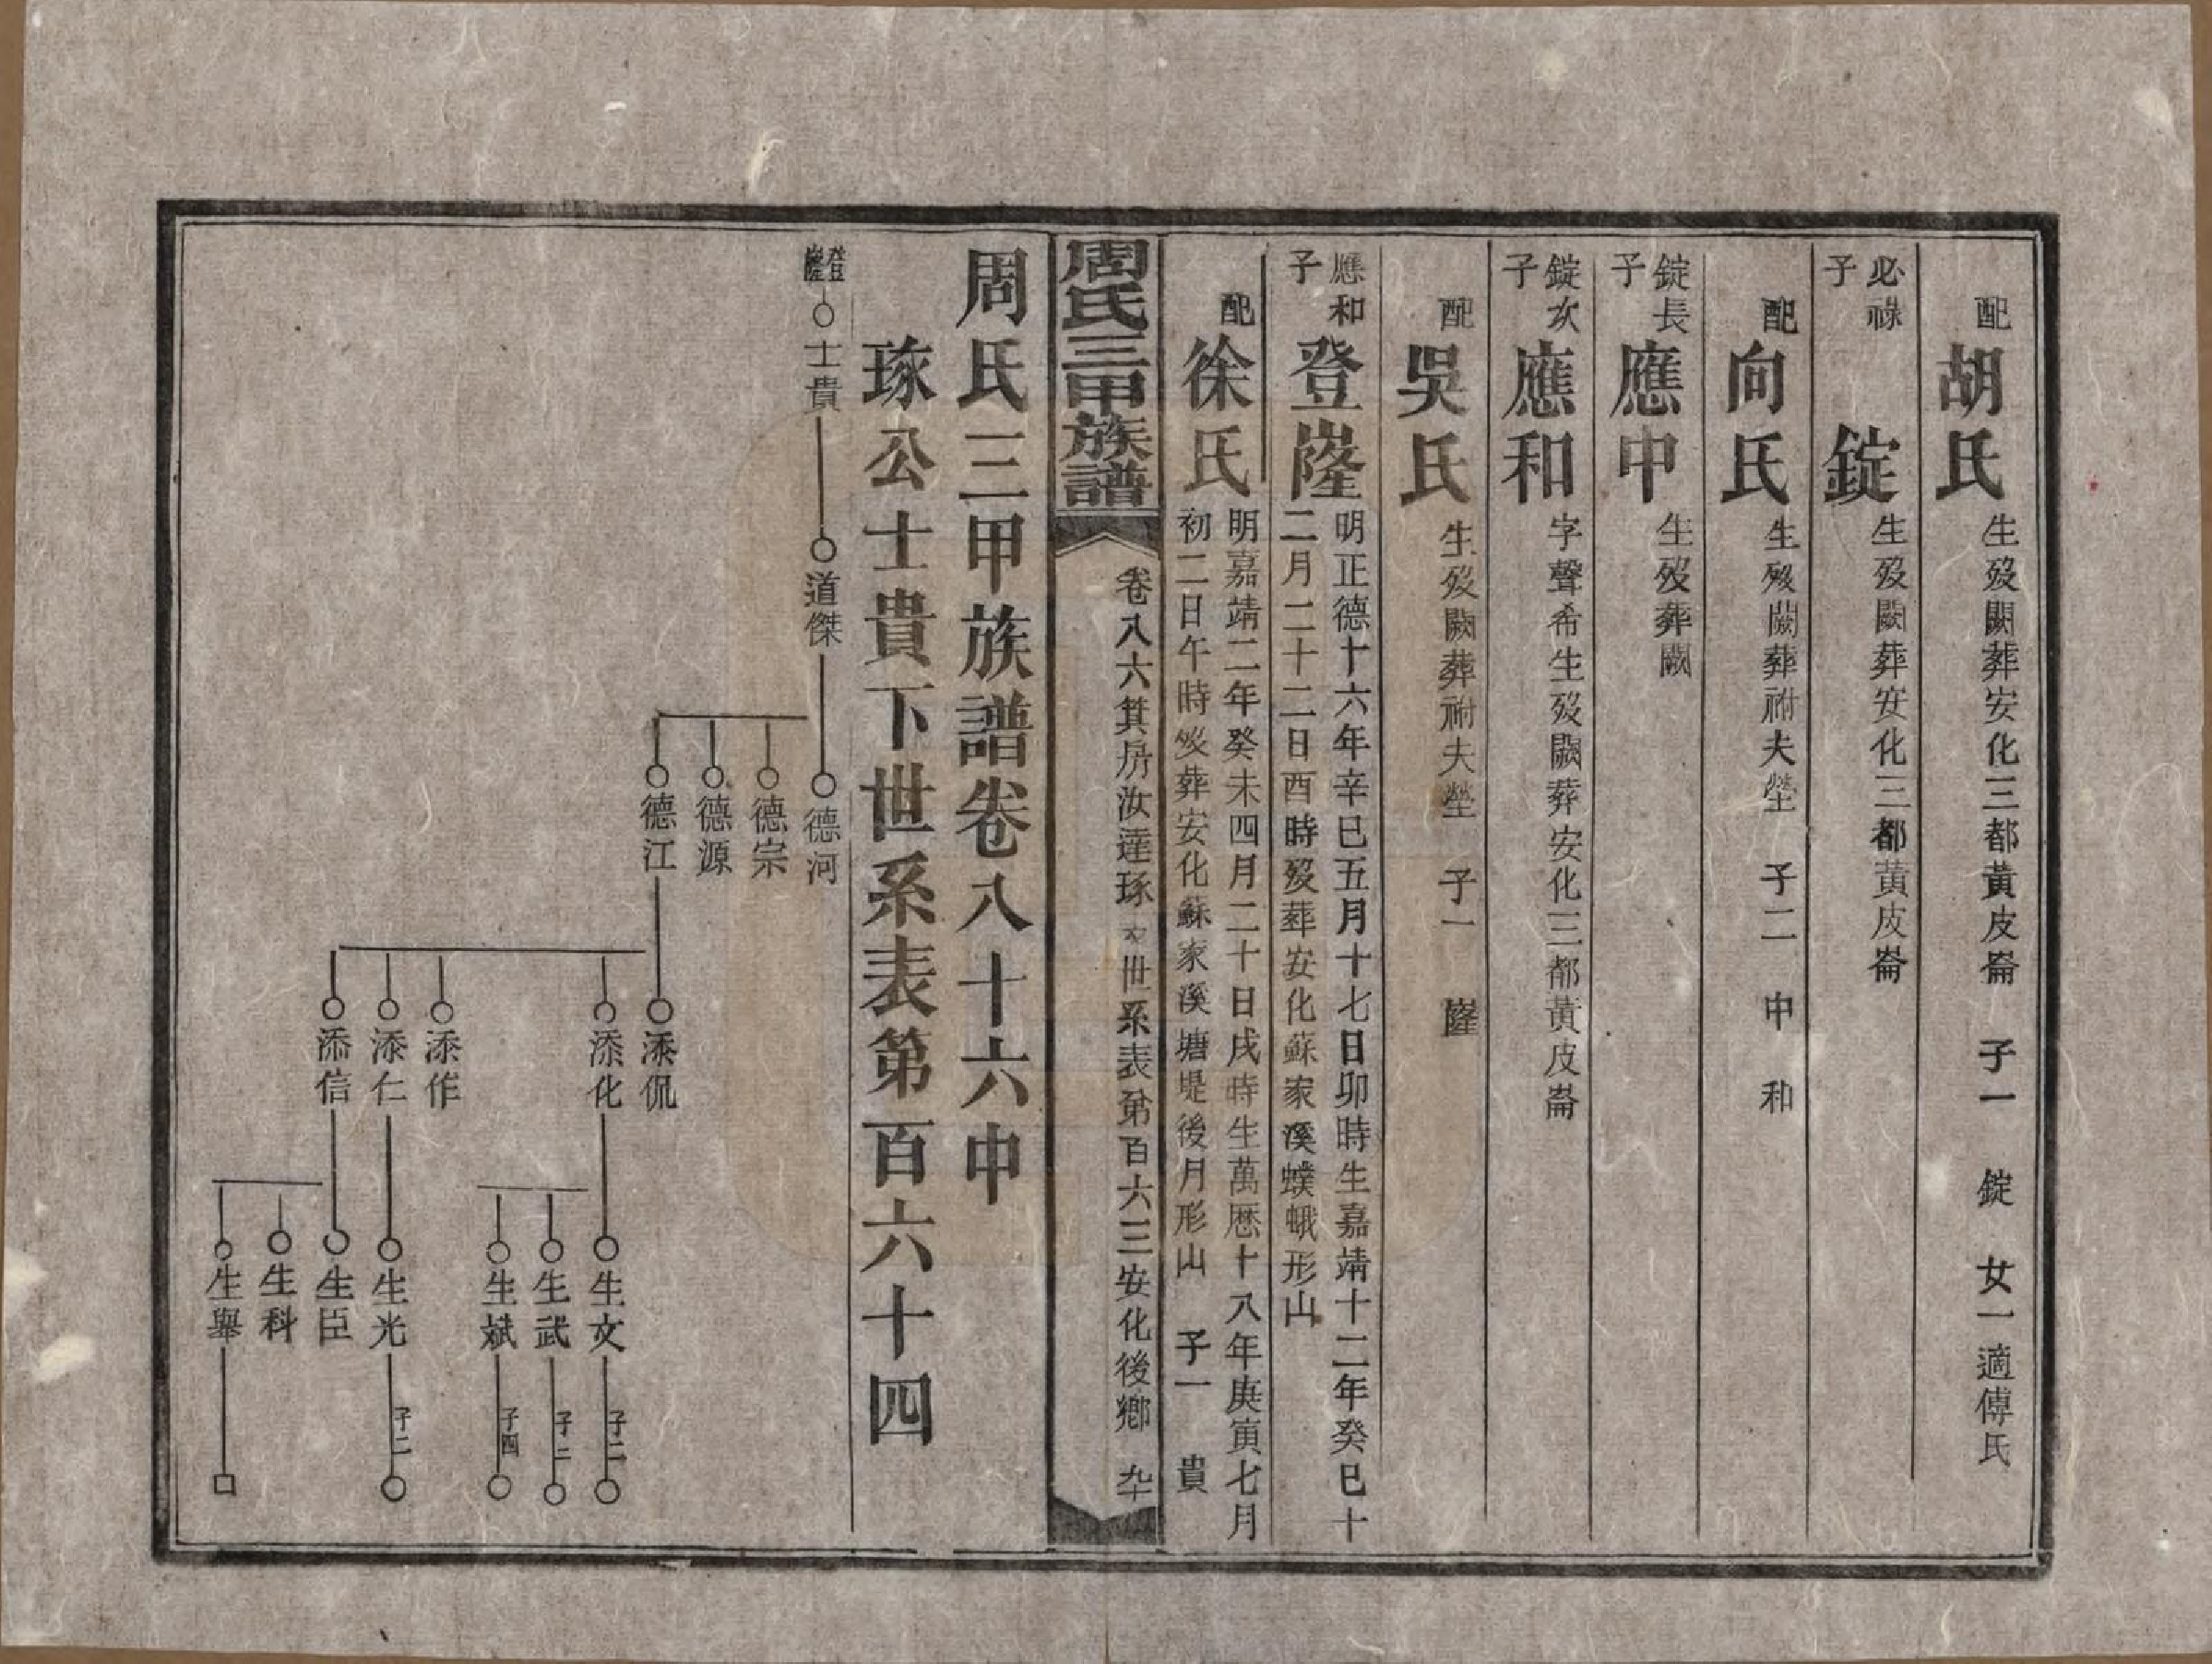 配胡氏生歿闕葬安化三都黃皮崙 子一 錠 女一適傅氏
必祿子錠生歿闕葬安化三都黃皮崙
配向氏生歿闕葬祔夫塋 子二 中 和
錠長子應中生歿葬闕
錠次子應和字聲希生歿闕葬安化三都黃皮崙
配吳氏生歿闕葬祔夫塋 子一 隆
應和子登隆明正德十六年辛巳五月十七日卯時生嘉靖十二年癸巳十
二月二十二日酉時歿葬安化蘇家溪蟆蛾形山
配徐氏明嘉靖二年癸未四月二十日戌時生萬曆十八年庚寅七月
初二日午時歿葬安化蘇家溪塘堤後月形山 子一 貴
周氏三甲族譜
卷八六箕房汝達琢 世系表第百六三安化後鄉 九十
周氏三甲族譜卷八十六中
琢公士貴下世系表第百六十四
登隆
士貴
道傑
德河
德宗
德源
德江
添侃
添化
添作
添仁
添信
生文 子二
生武 子二
生斌 子四
生光 子二
生臣
生科
生舉